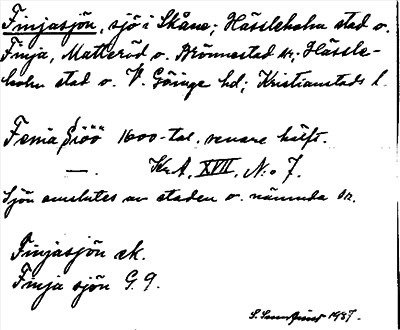 Finjasjön, sjö i Skåne; Hässleholm stad o.
Finja, Matteröd o. Brönnestad sn; Hässle-
holm stad o. V. Göinge hd; Kristianstads l.
Fenia Siöö 1600-tal. senare hälft.
— . Kr.A. XVII, N:o 7.
Sjön omslutes av staden o. nämnda sn.
Finjasjön ek.
Finja sjön G. 9.
1937.